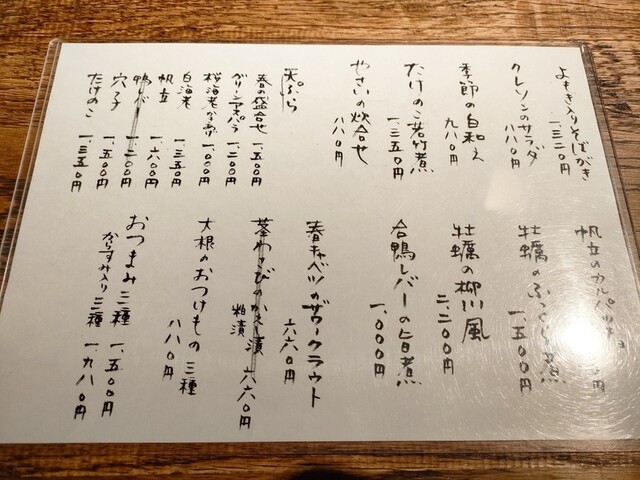 よもぎ入りそばがき 一、三二〇円
クレソンのサラダ 八八〇円
季節の白和え 九八〇円
たけのこ若竹煮 一、三五〇円
やさいの炊合せ 八八〇円
天ぷら
春の盛合せ 一、五〇〇円
グリーンアスパラ 一、二〇〇円
桜海老かき揚 一、〇〇〇円
白海老 一、三五〇円
帆立 一、六〇〇円
鴨ねぎ 一、二〇〇円
穴子 一、五〇〇円
たけのこ 一、三五〇円
帆立のカルパッチョ 円
牡蠣のふっくら煮 一、五〇〇円
牡蠣の柳川風 二、二〇〇円
合鴨レバーの旨煮 一、〇〇〇円
春キャベツのザワークラウト 六六〇円
茎わさびのかえし漬 六六〇円
粕漬
大根のおつけもの 三種 八八〇円
おつまみ三種 一、五〇〇円
からすみ入り三種 一、九八〇円